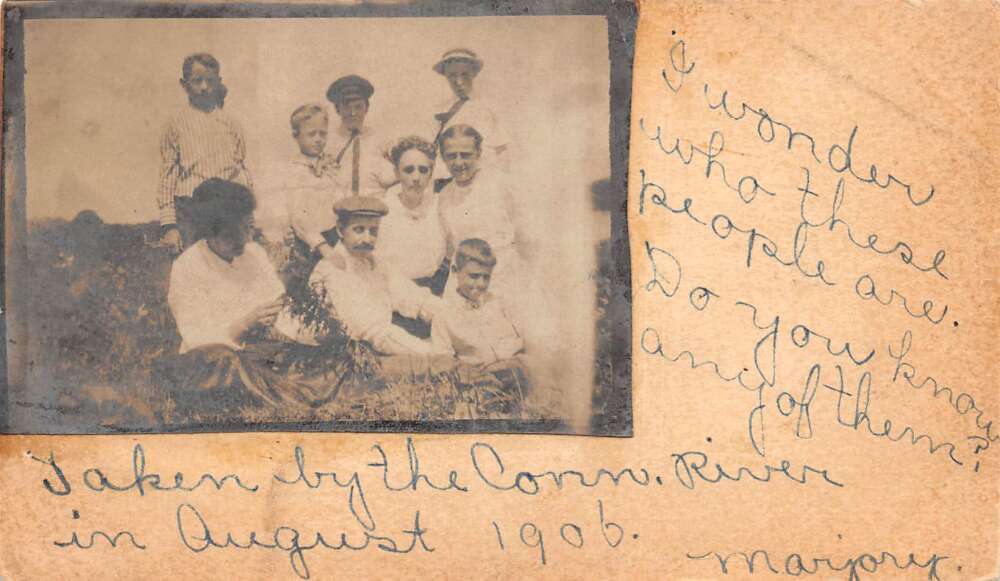 I wonder
who these
people are.
Do you know
any of them?
Taken by the Conn. River
in August 1906.
Marjory.